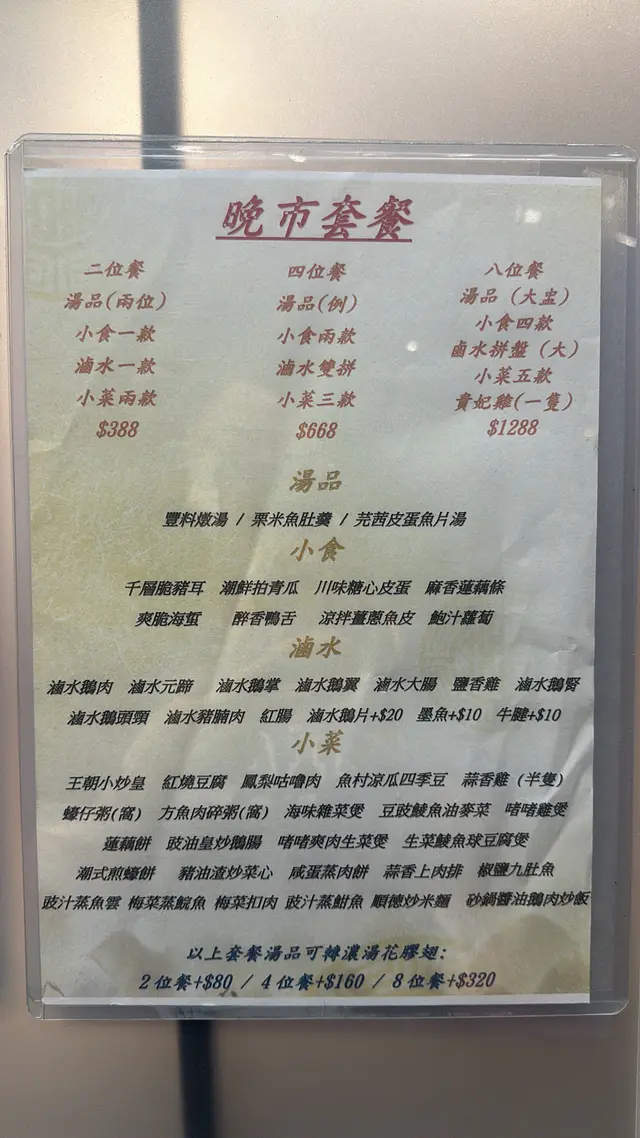 晚市套餐
二位餐
湯品(兩位)
小食一款
滷水一款
小菜兩款
$388
四位餐
湯品(例)
小食兩款
滷水雙拼
小菜三款
$668
八位餐
湯品 (大盅)
小食四款
鹵水拼盤 (大)
小菜五款
貴妃雞(一隻)
$1288
湯品
豐料燉湯 / 栗米魚肚羹 / 芫茜皮蛋魚片湯
小食
千層脆豬耳 潮鮮拍青瓜 川味糖心皮蛋 麻香蓮藕條
爽脆海蜇 醉香鴨舌 涼拌薑蔥魚皮 鮑汁蘿蔔
滷水
滷水鵝肉 滷水元蹄 滷水鵝掌 滷水鵝翼 滷水大腸 鹽香雞 滷水鵝腎
滷水鵝頭頸 滷水豬腩肉 紅腸 滷水鵝片+$20 墨魚+$10 牛腱+$10
小菜
王朝小炒皇 紅燒豆腐 鳳梨咕嚕肉 魚村涼瓜四季豆 蒜香雞 (半隻)
蠔仔粥(窩) 方魚肉碎粥(窩) 海味雜菜煲 豆豉鯪魚油麥菜 啫啫雞煲
蓮藕餅 豉油皇炒鵝腸 啫啫爽肉生菜煲 生菜鯪魚球豆腐煲
潮式煎蠔餅 豬油渣炒菜心 咸蛋蒸肉餅 蒜香上肉排 椒鹽九肚魚
豉汁蒸魚雲 梅菜蒸鯇魚 梅菜扣肉 豉汁蒸魽魚 順德炒米麵 砂鍋醬油鵝肉炒飯
以上套餐湯品可轉濃湯花膠翅:
2位餐+$80 / 4位餐+$160 / 8位餐+$320